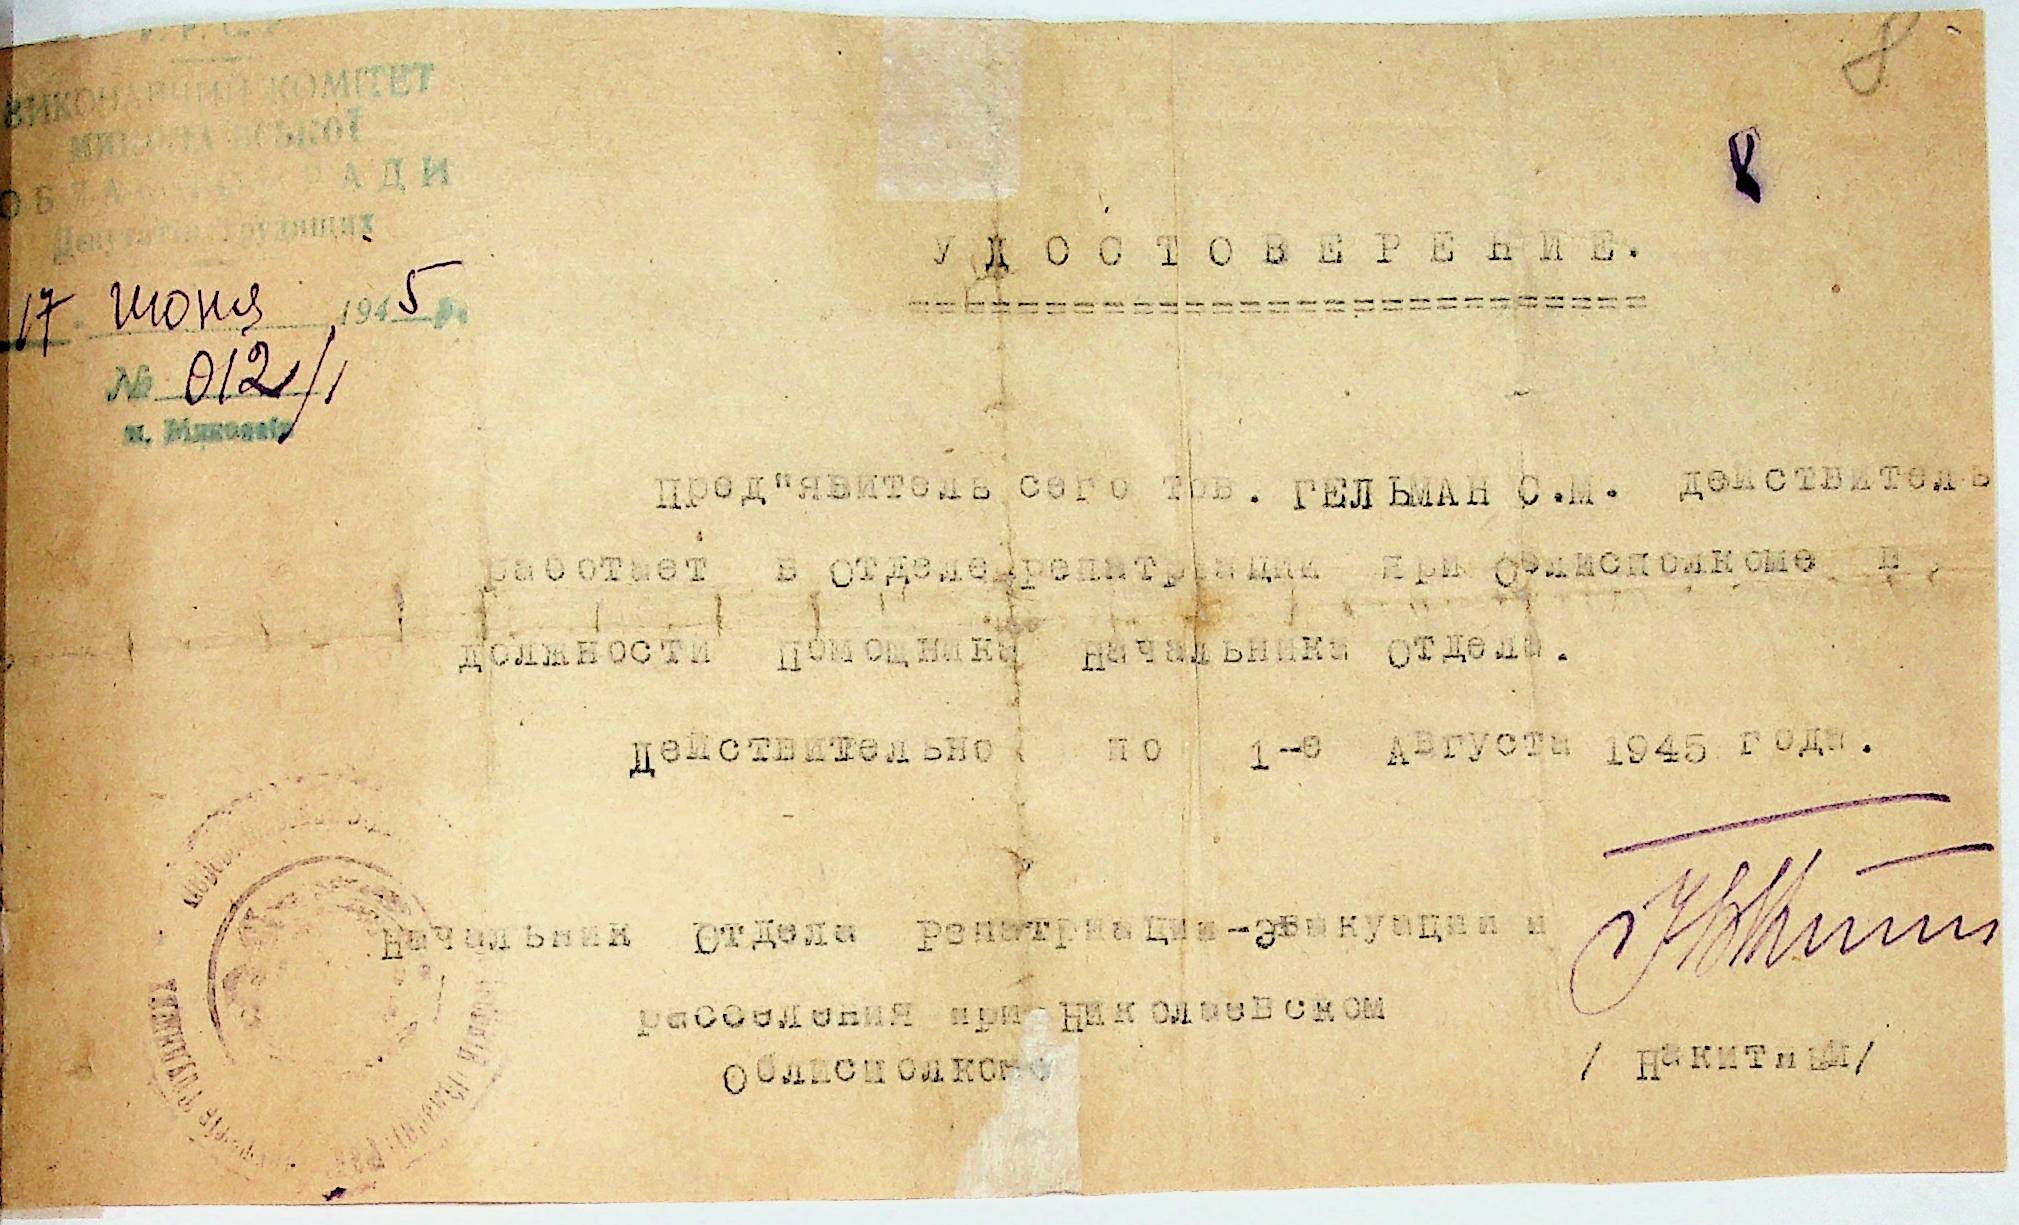 У.Р.С.Р
ВИКОНАВЧИЙ КОМІТЕТ
МИКОЛАЇВСЬКОЇ
РАДИ
Депутатів Трудящих
17 июня 1945 р.
№ 012/1
м. Миколаїв
8
8
УДОСТОВЕРЕНИЕ.
==========================
Пред"явитель сего тов. ГЕЛЬМАН С.М. действитель
работает в Отделе репатриации при Облисполкоме в
должности Помощника Начальника Отдела.
Действительно по 1-е Августа 1945 года.
Начальник Отдела Репатриации-Эвакуации и
расселения при Николаевском
Облисполкоме
/ Никитин/